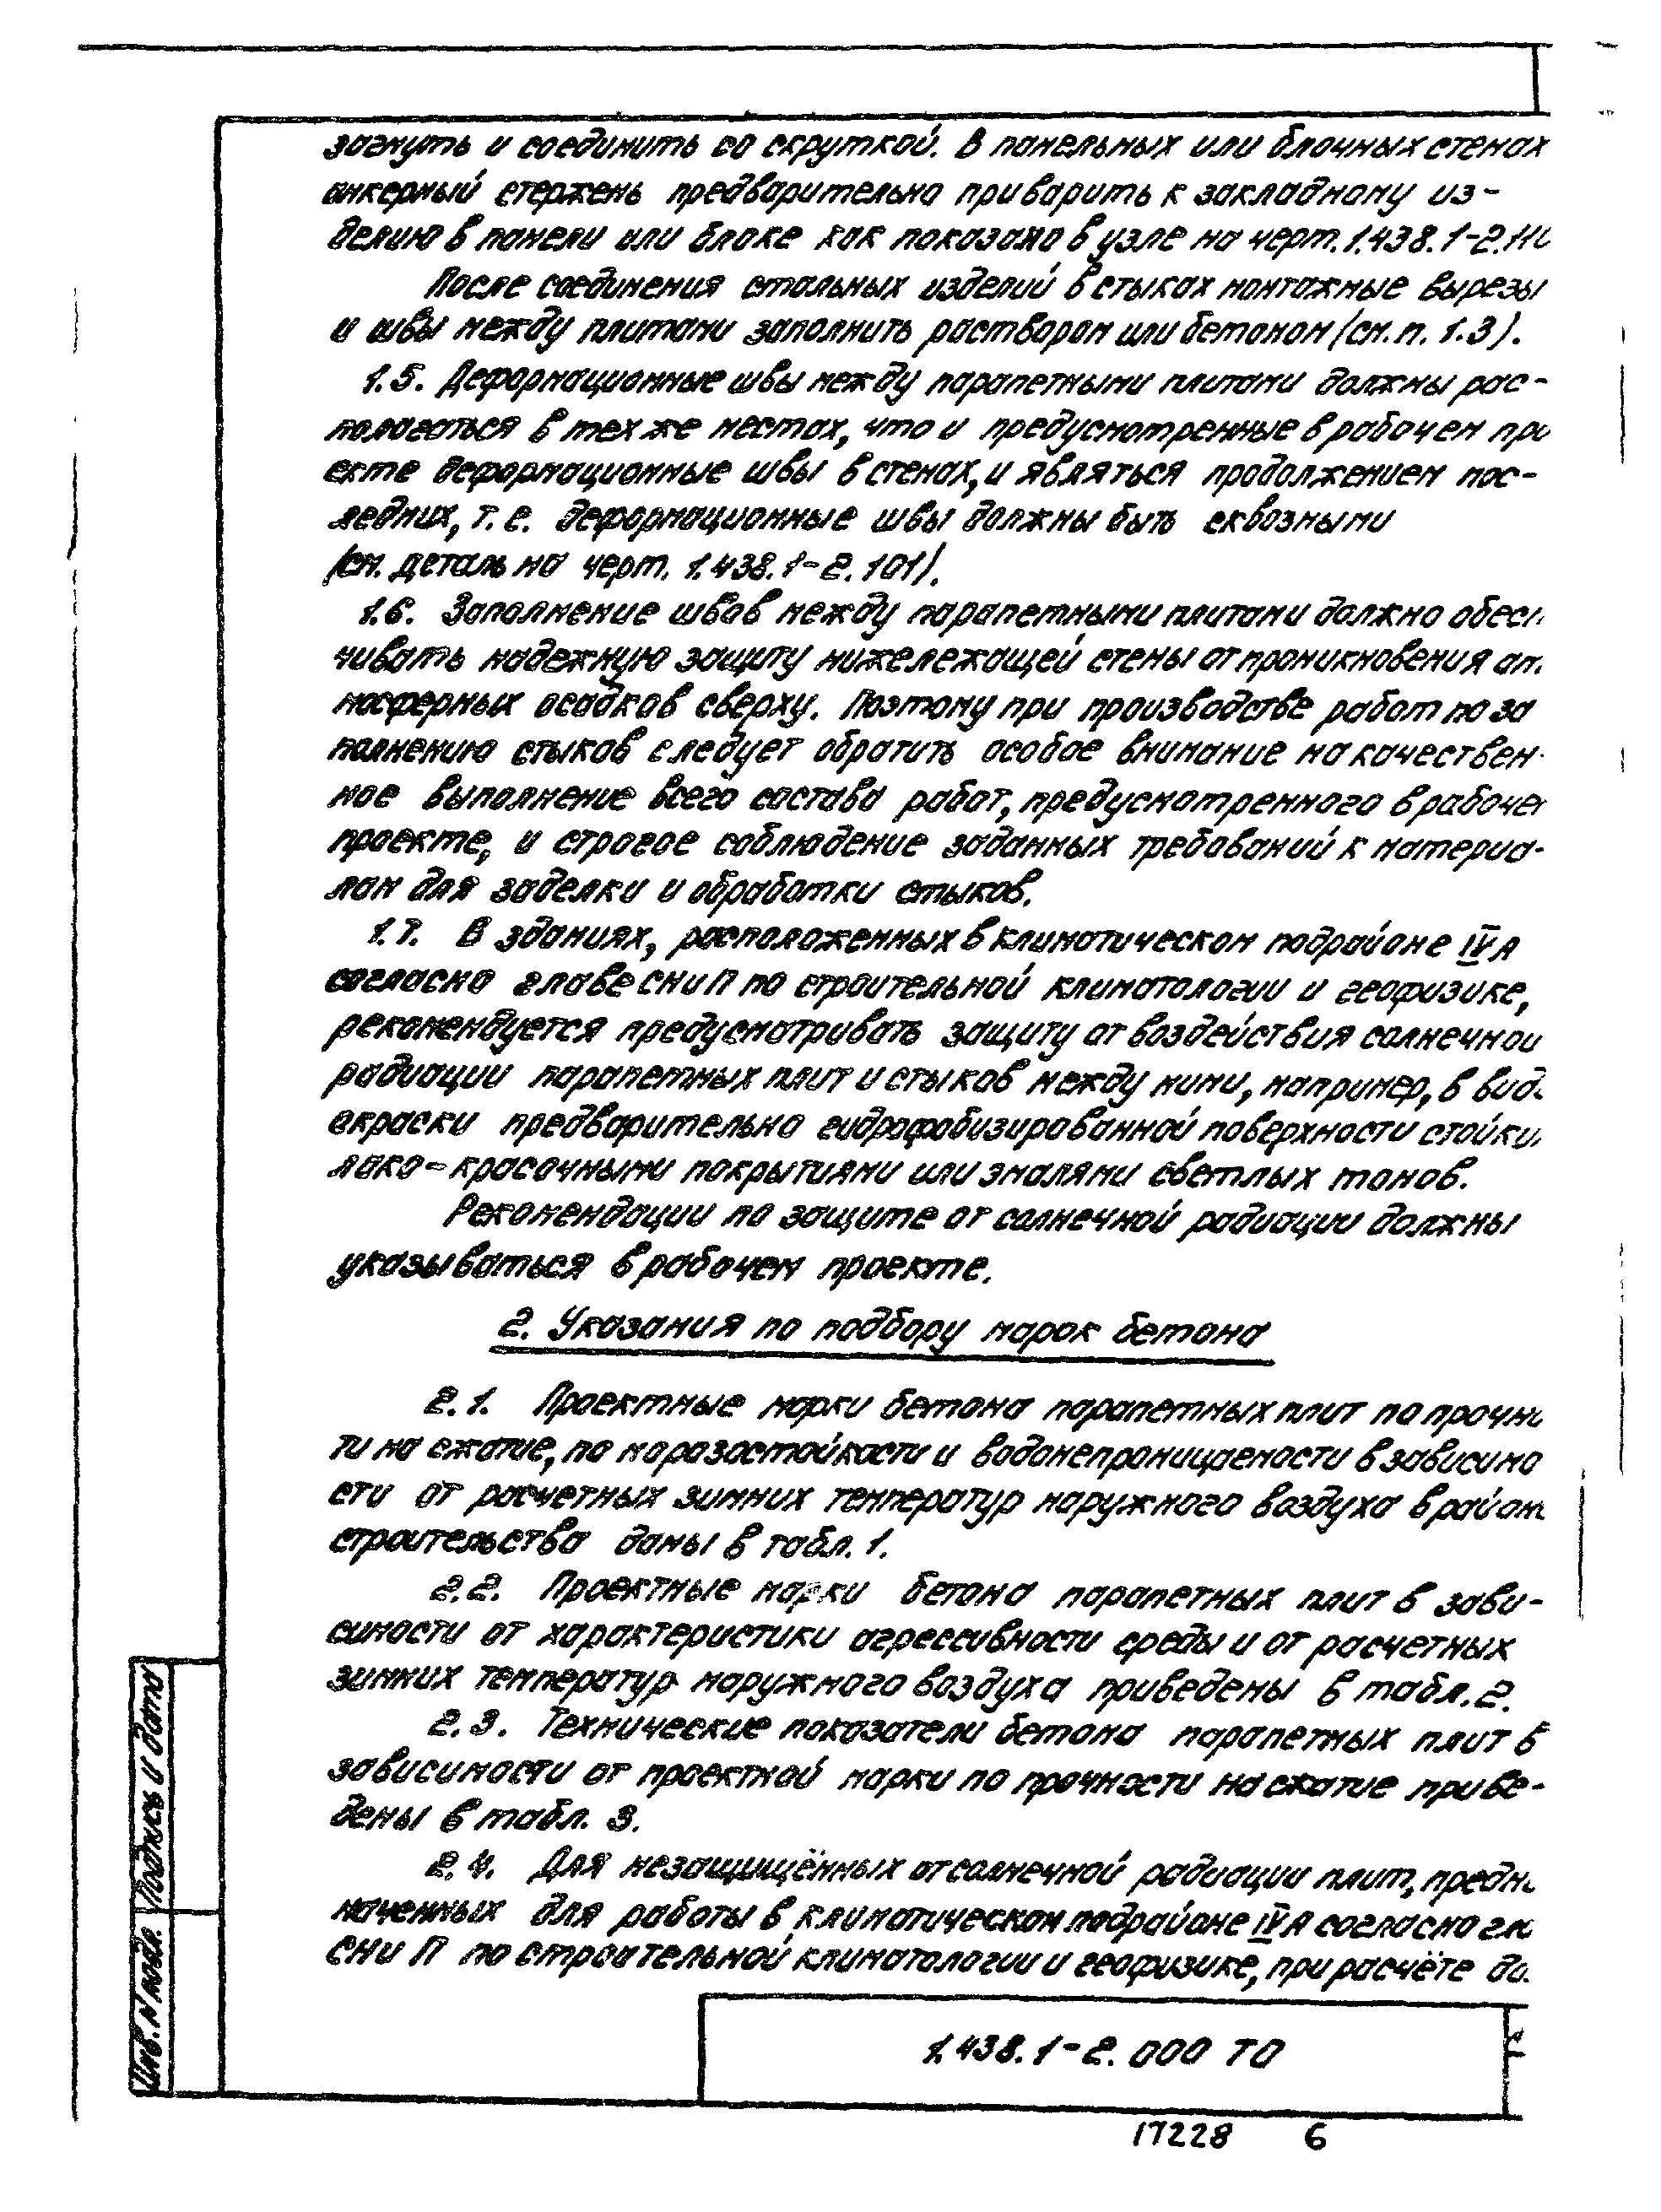 загнуть и соединить со скруткой. В панельных или блочных стенах
анкерный стержень предварительно приварить к закладному из-
делию в панели или блоке как показано в узле на черт. 1.438.1-2.
После соединения стальных изделий в стыках монтажные вырезы
и швы между плитами заполнить раствором или бетоном (см. п. 1.3).
1.5. Деформационные швы между парапетными плитами должны рас-
полагаться в тех же местах, что и предусмотренные в рабочем про
екте деформационные швы в стенах, и являться продолжением пос-
ледних, т. е. деформационные швы должны быть сквозными
(см. деталь на черт. 1.438.1-2.101).
1.6. Заполнение швов между парапетными плитами должно обес
чивать надежную защиту нижележащей стены от проникновения ат
мосферных осадков сверху. Поэтому при производстве работ по за
полнению стыков следует обратить особое внимание на качествен-
ное выполнение всего состава работ, предусмотренного в рабоче
проекте, и строгое соблюдение заданных требований к материа-
лам для заделки и обработки стыков.
1.7. В зданиях, расположенных в климатическом подрайоне IV А
согласно главе СНиП по строительной климатологии и геофизике,
рекомендуется предусматривать защиту от воздействия солнечной
радиации парапетных плит и стыков между ними, например, в вид
окраски предварительно гидрофобизированной поверхности стойки
лако-красочными покрытиями или эмалями светлых тонов.
Рекомендации по защите от солнечной радиации должны
указываться в рабочем проекте.
2. Указания по подбору марок бетона
2.1. Проектные марки бетона парапетных плит по прочно
ти на сжатие, по морозостойкости и водонепроницаемости в зависимо
сти от расчетных зимних температур наружного воздуха в район
строительства даны в табл. 1.
2.2. Проектные марки бетона парапетных плит в зави-
симости от характеристики агрессивности среды и от расчетных
зимних температур наружного воздуха приведены в табл. 2.
2.3. Технические показатели бетона парапетных плит в
зависимости от проектной марки по прочности на сжатие приве-
дены в табл. 3.
2.4. Для незащищённых от солнечной радиации плит, предн
наченных для работы в климатическом подрайоне IV А согласно гл
СНиП по строительной климатологии и геофизике, при расчёте до
Инв. N подл. Подпись и дата
1.438.1-2.000 ТО
17228 6